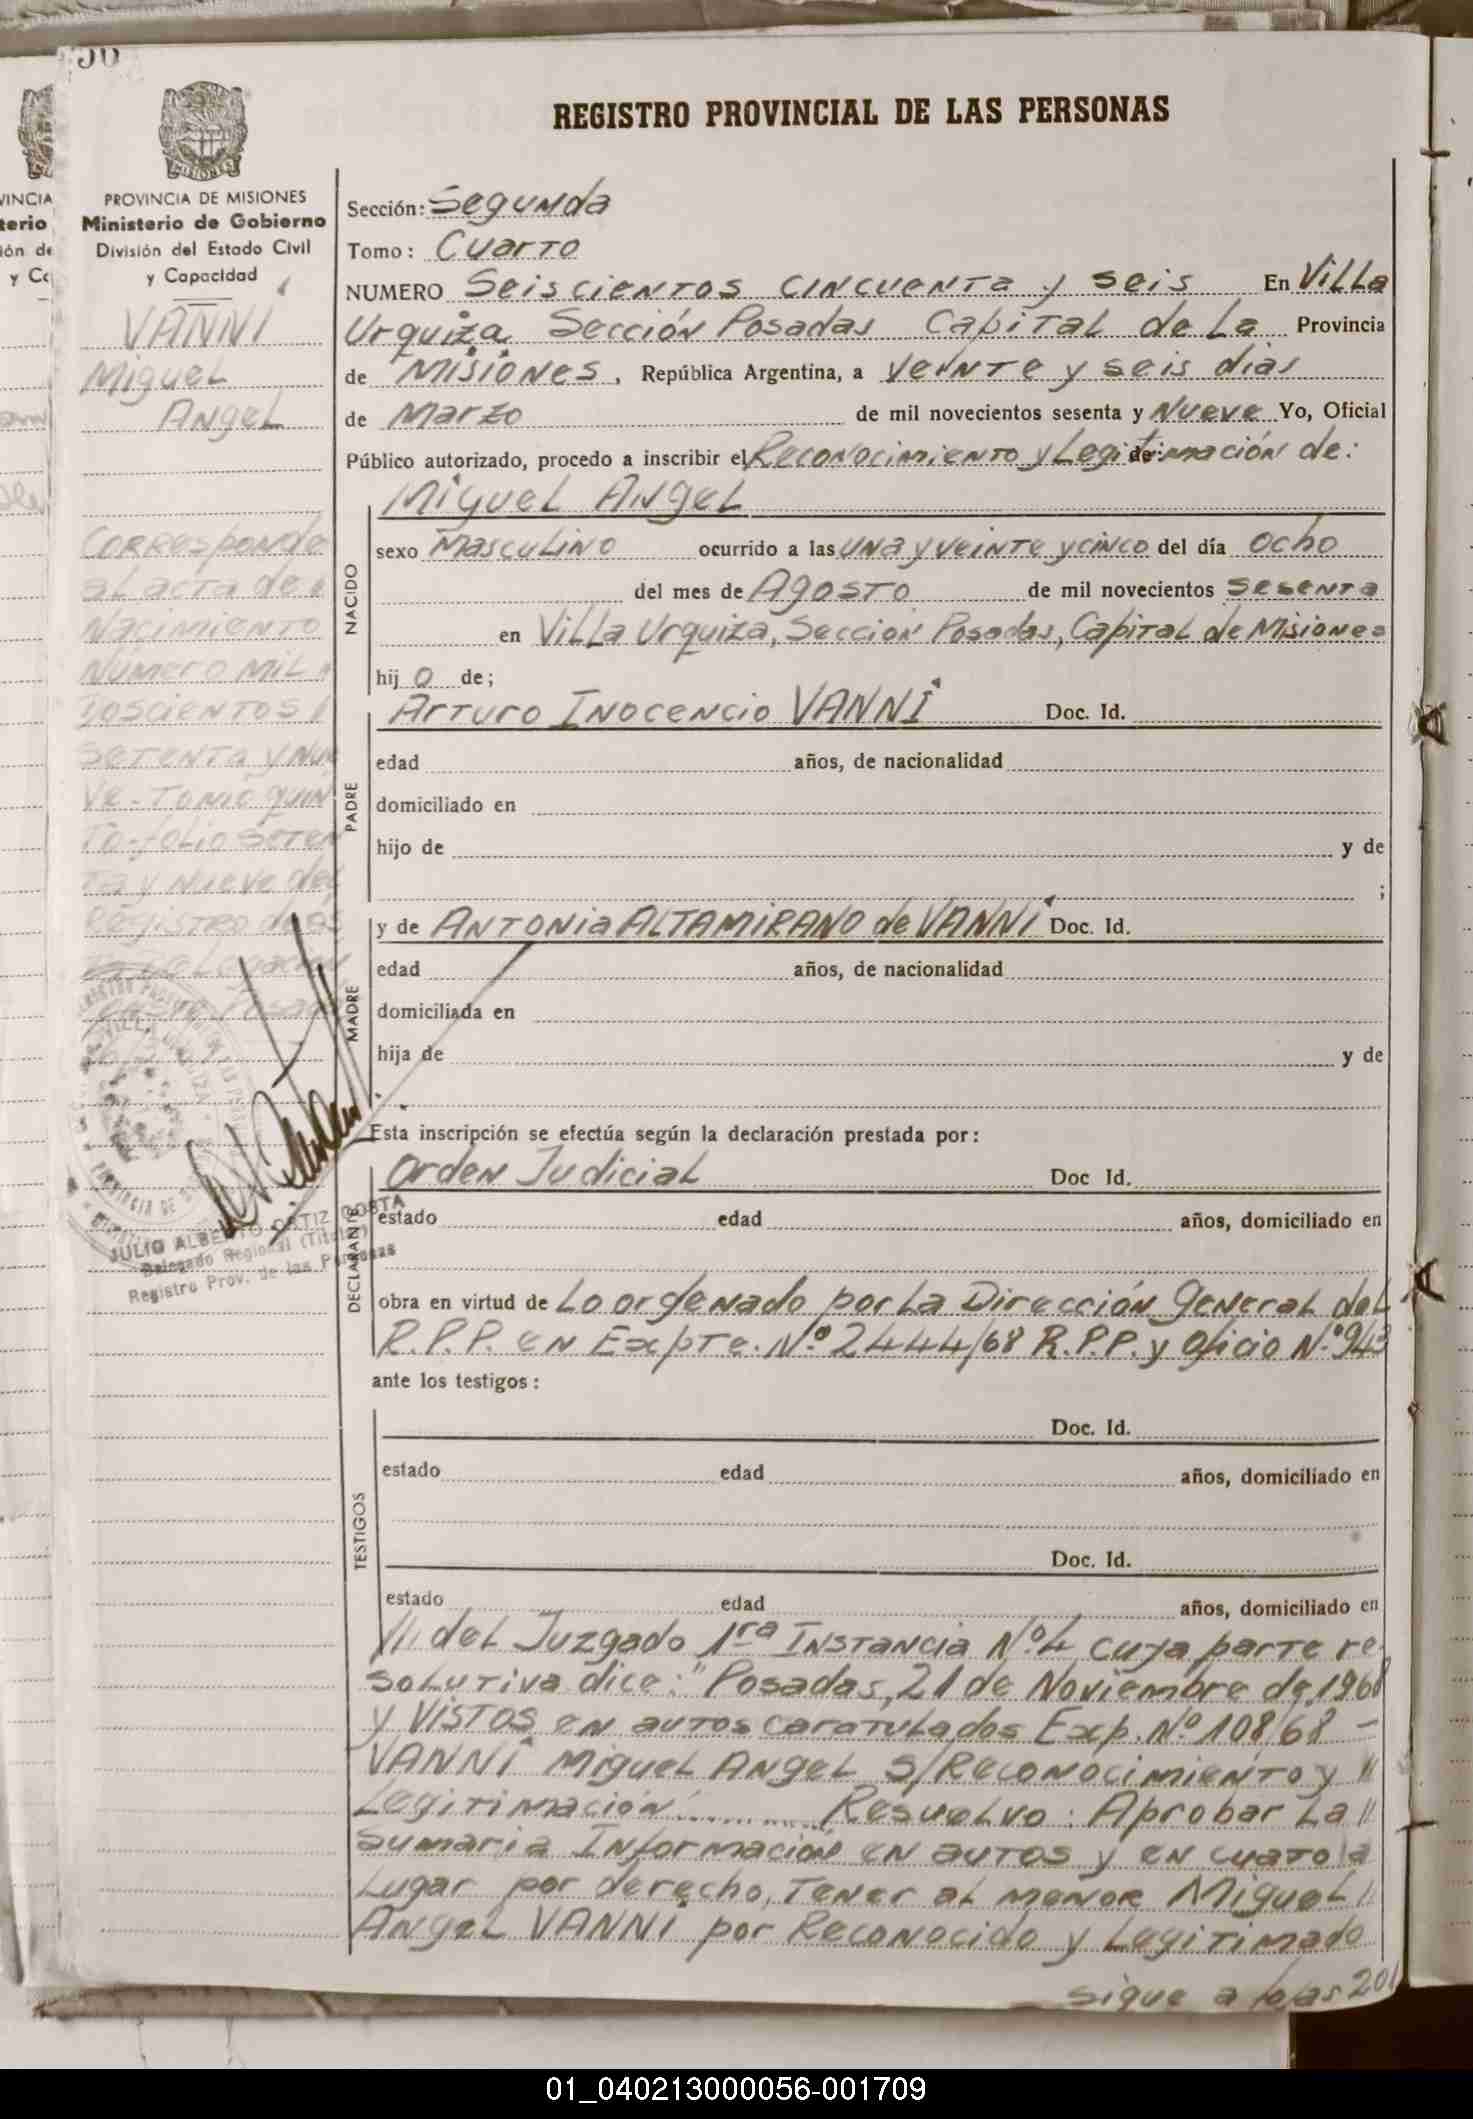 REGISTRO PROVINCIAL DE LAS PERSONAS
MISIONES
PROVINCIA DE MISIONES
Ministerio de Gobierno
División del Estado Civil
y Capacidad
VANNI
Miguel
Angel
Corresponde
al acta de
Nacimiento
Número Mil
Doscientos
Setenta y Nue
ve - Tomo Quin
to - folio Seten
ta y Nueve del
Registro de és
JULIO ALBERTO ORTIZ COSTA
Delegado Regional (Titular)
Registro Prov. de las Personas
Sección: Segunda
Tomo: Cuarto
NUMERO Seiscientos cincuenta y seis En Villa
Urquiza Sección Posadas Capital de La Provincia
de Misiones, República Argentina, a veinte y seis dias
de Marzo de mil novecientos sesenta y Nueve Yo, Oficial
Público autorizado, procedo a inscribir el Reconocimiento y Legitimación de:
NACIDO
Miguel Angel
sexo Masculino ocurrido a las una y veinte y cinco del día ocho
del mes de Agosto de mil novecientos sesenta
en Villa Urquiza, Sección Posadas, Capital de Misiones
hijo de;
PADRE
Arturo Inocencio VANNI Doc. Id.
edad años, de nacionalidad
domiciliado en
hijo de y de
;
MADRE
y de Antonia ALTAMIRANO de VANNI Doc. Id.
edad años, de nacionalidad
domiciliada en
hija de y de
Esta inscripción se efectúa según la declaración prestada por:
DECLARANTE
Orden Judicial Doc Id.
estado edad años, domiciliado en
obra en virtud de Lo ordenado por la Dirección General del
R.P.P. en Expte. Nº 2444/68 R.P.P. y Oficio Nº 943
ante los testigos:
TESTIGOS
Doc. Id.
estado edad años, domiciliado en
Doc. Id.
estado edad años, domiciliado en
/// del Juzgado 1ra Instancia Nº 4 cuya parte re
solutiva dice: "Posadas, 21 de Noviembre de 1968
y VISTOS en autos caratulados Exp. Nº 108/68 -
VANNI Miguel Angel S/Reconocimiento y //
Legitimación ........... Resuelvo: Aprobar La //
Sumaria Información en autos y en cuanto a
Lugar por derecho, Tener al menor Miguel //
Angel VANNI por Reconocido y Legitimado
sigue a fojas 201
01_040213000056-001709